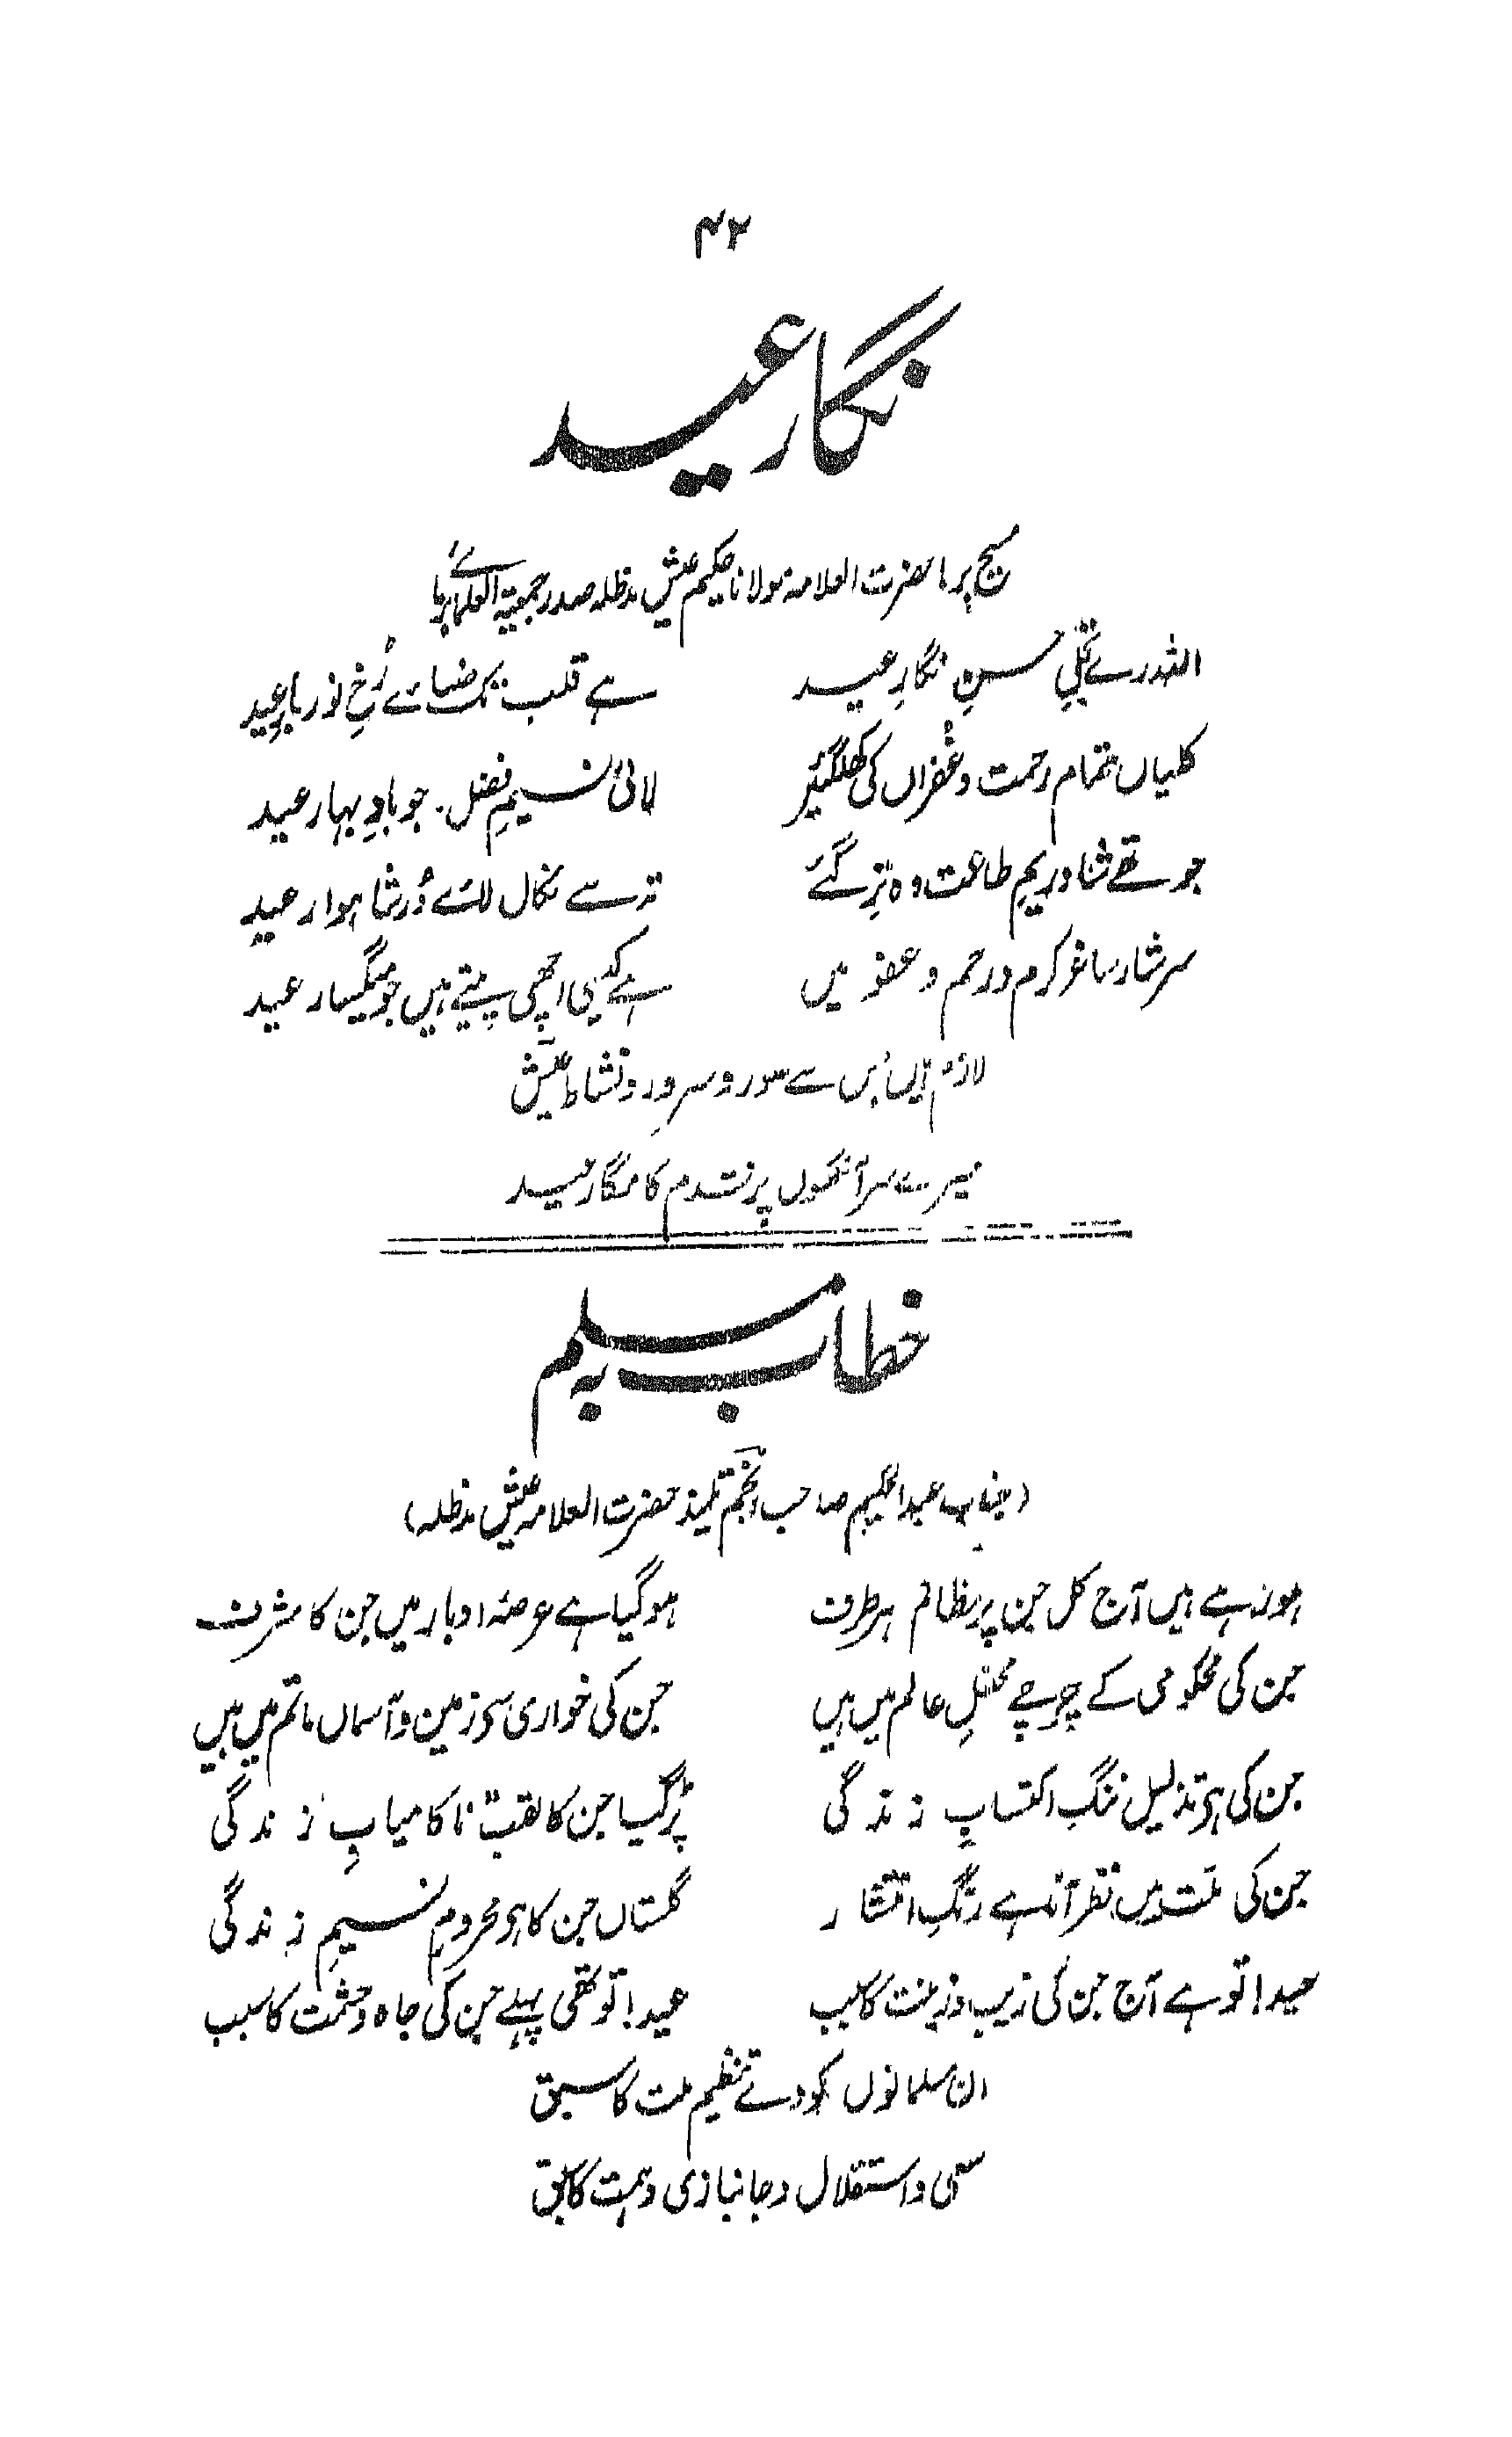 ۴۲
نگار عید
مسیح برما حضرت العلامہ مولانا حکیم عیش مدظلہ صدر جمعیۃ العلمائے برما
اللہ رے تجلیِ حسنِ نگارِ عید ہے قلب یک ضیائے رُخِ نور بارِ عید
کلیاں تمام رحمت و غفراں کی کھلگئیں لائی نسیمِ فضل۔ جو بادِ بہار عید
جو تھے شناورِ یمِ طاعت وہ تِر گئے تہ سے نکال لائے دُر شاہوار عید
سرشار ساغر کرم و رحم و عفو میں ہے کیسی اچھی پیتے ہیں جو میگسار عید
لازم ہیں بس سے سور و سرور و نشاط عیش
میرے سر آنکھوں پر قدم کامگار عید
خطاب بہ مسلم
(جناب عبدالحکیم صاحب انجم تلمیذ حضرت العلامہ عیش مدظلہ)
ہو رہے ہیں آج کل جن پر مظالم ہر طرف ہو گیا ہے عرصۂ ادبار میں جن کا شرف
جن کی محکومی کے چرچے محفلِ عالم میں ہیں جن کی خواری سے زمین و آسماں ماتم میں ہیں
جن کی ہے تذلیل ننگ اکتسابِ زندگی پڑ گیا جن کا لقب نا کامیابِ زندگی
جن کی ملت میں نظر آتا ہے رنگِ انتشار گلستاں جن کا ہے محرومِ نسیمِ زندگی
عید! تو ہے آج جن کی زیب و زینت کا سبب عید! تو تھی پہلے جن کی جاہ و حشمت کا سبب
ان مسلمانوں کو دے تنظیم ملت کا سبق
سعی و استقلال و جانبازی و ہمت کا سبق